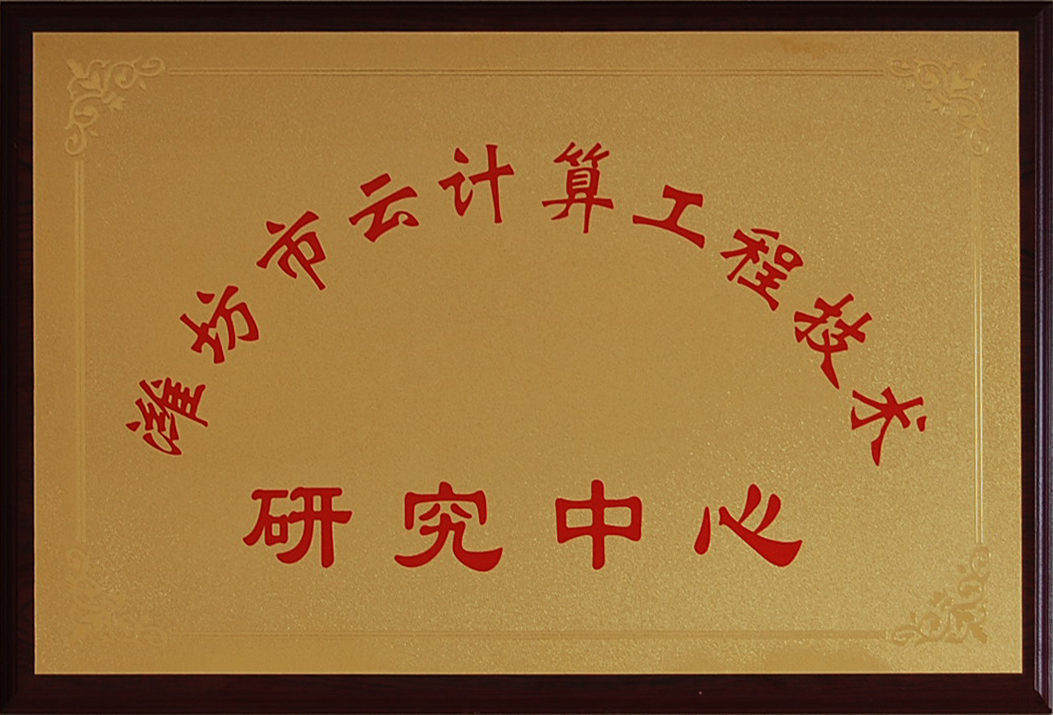 潍坊市云计算工程技术
研究中心